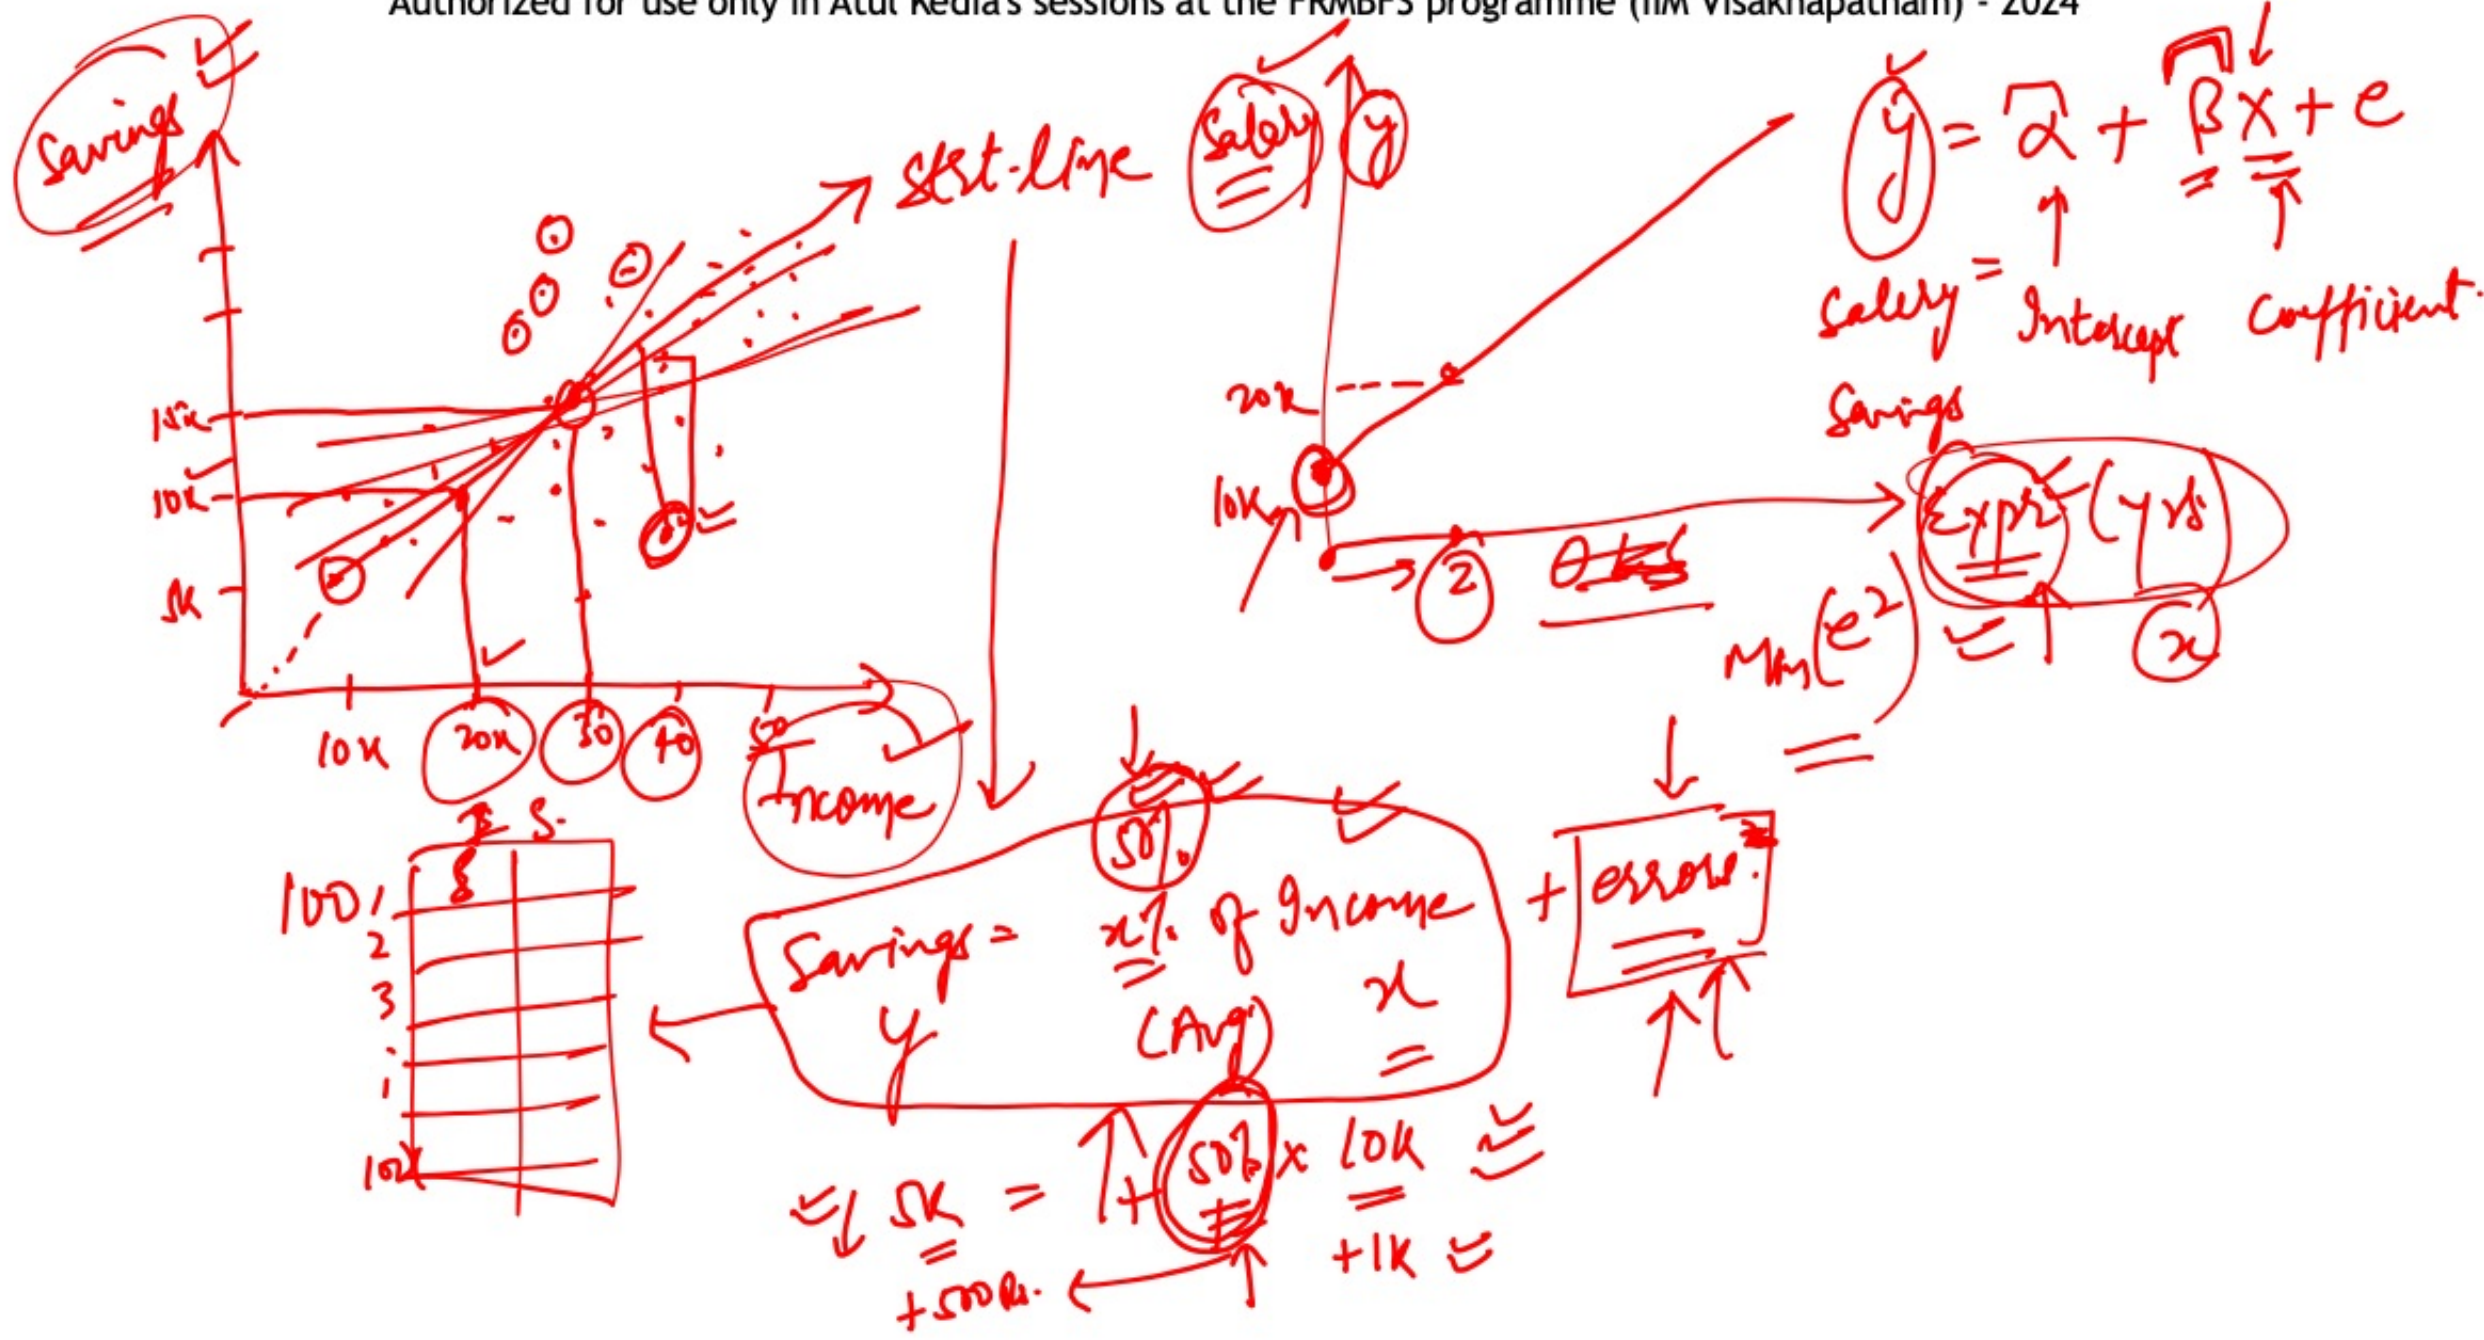 Authorized for use only in Atul Kedia's sessions at the FRMBFS programme (IIM Visakhapatnam) - 2024
Savings
15K
10K
5K
10K
20K
30
40
50
Income
Strt-line
Salary
y
20K
10K
2
Expr (yrs)
x
y = α + βx + e
Salary = Intercept Coefficient.
Savings
Min (e²)
I S.
100
1
2
3
50%
Savings = x% of Income + errors
y (Avg) x
5K = + 50% x 10K
+500Rs. +1K